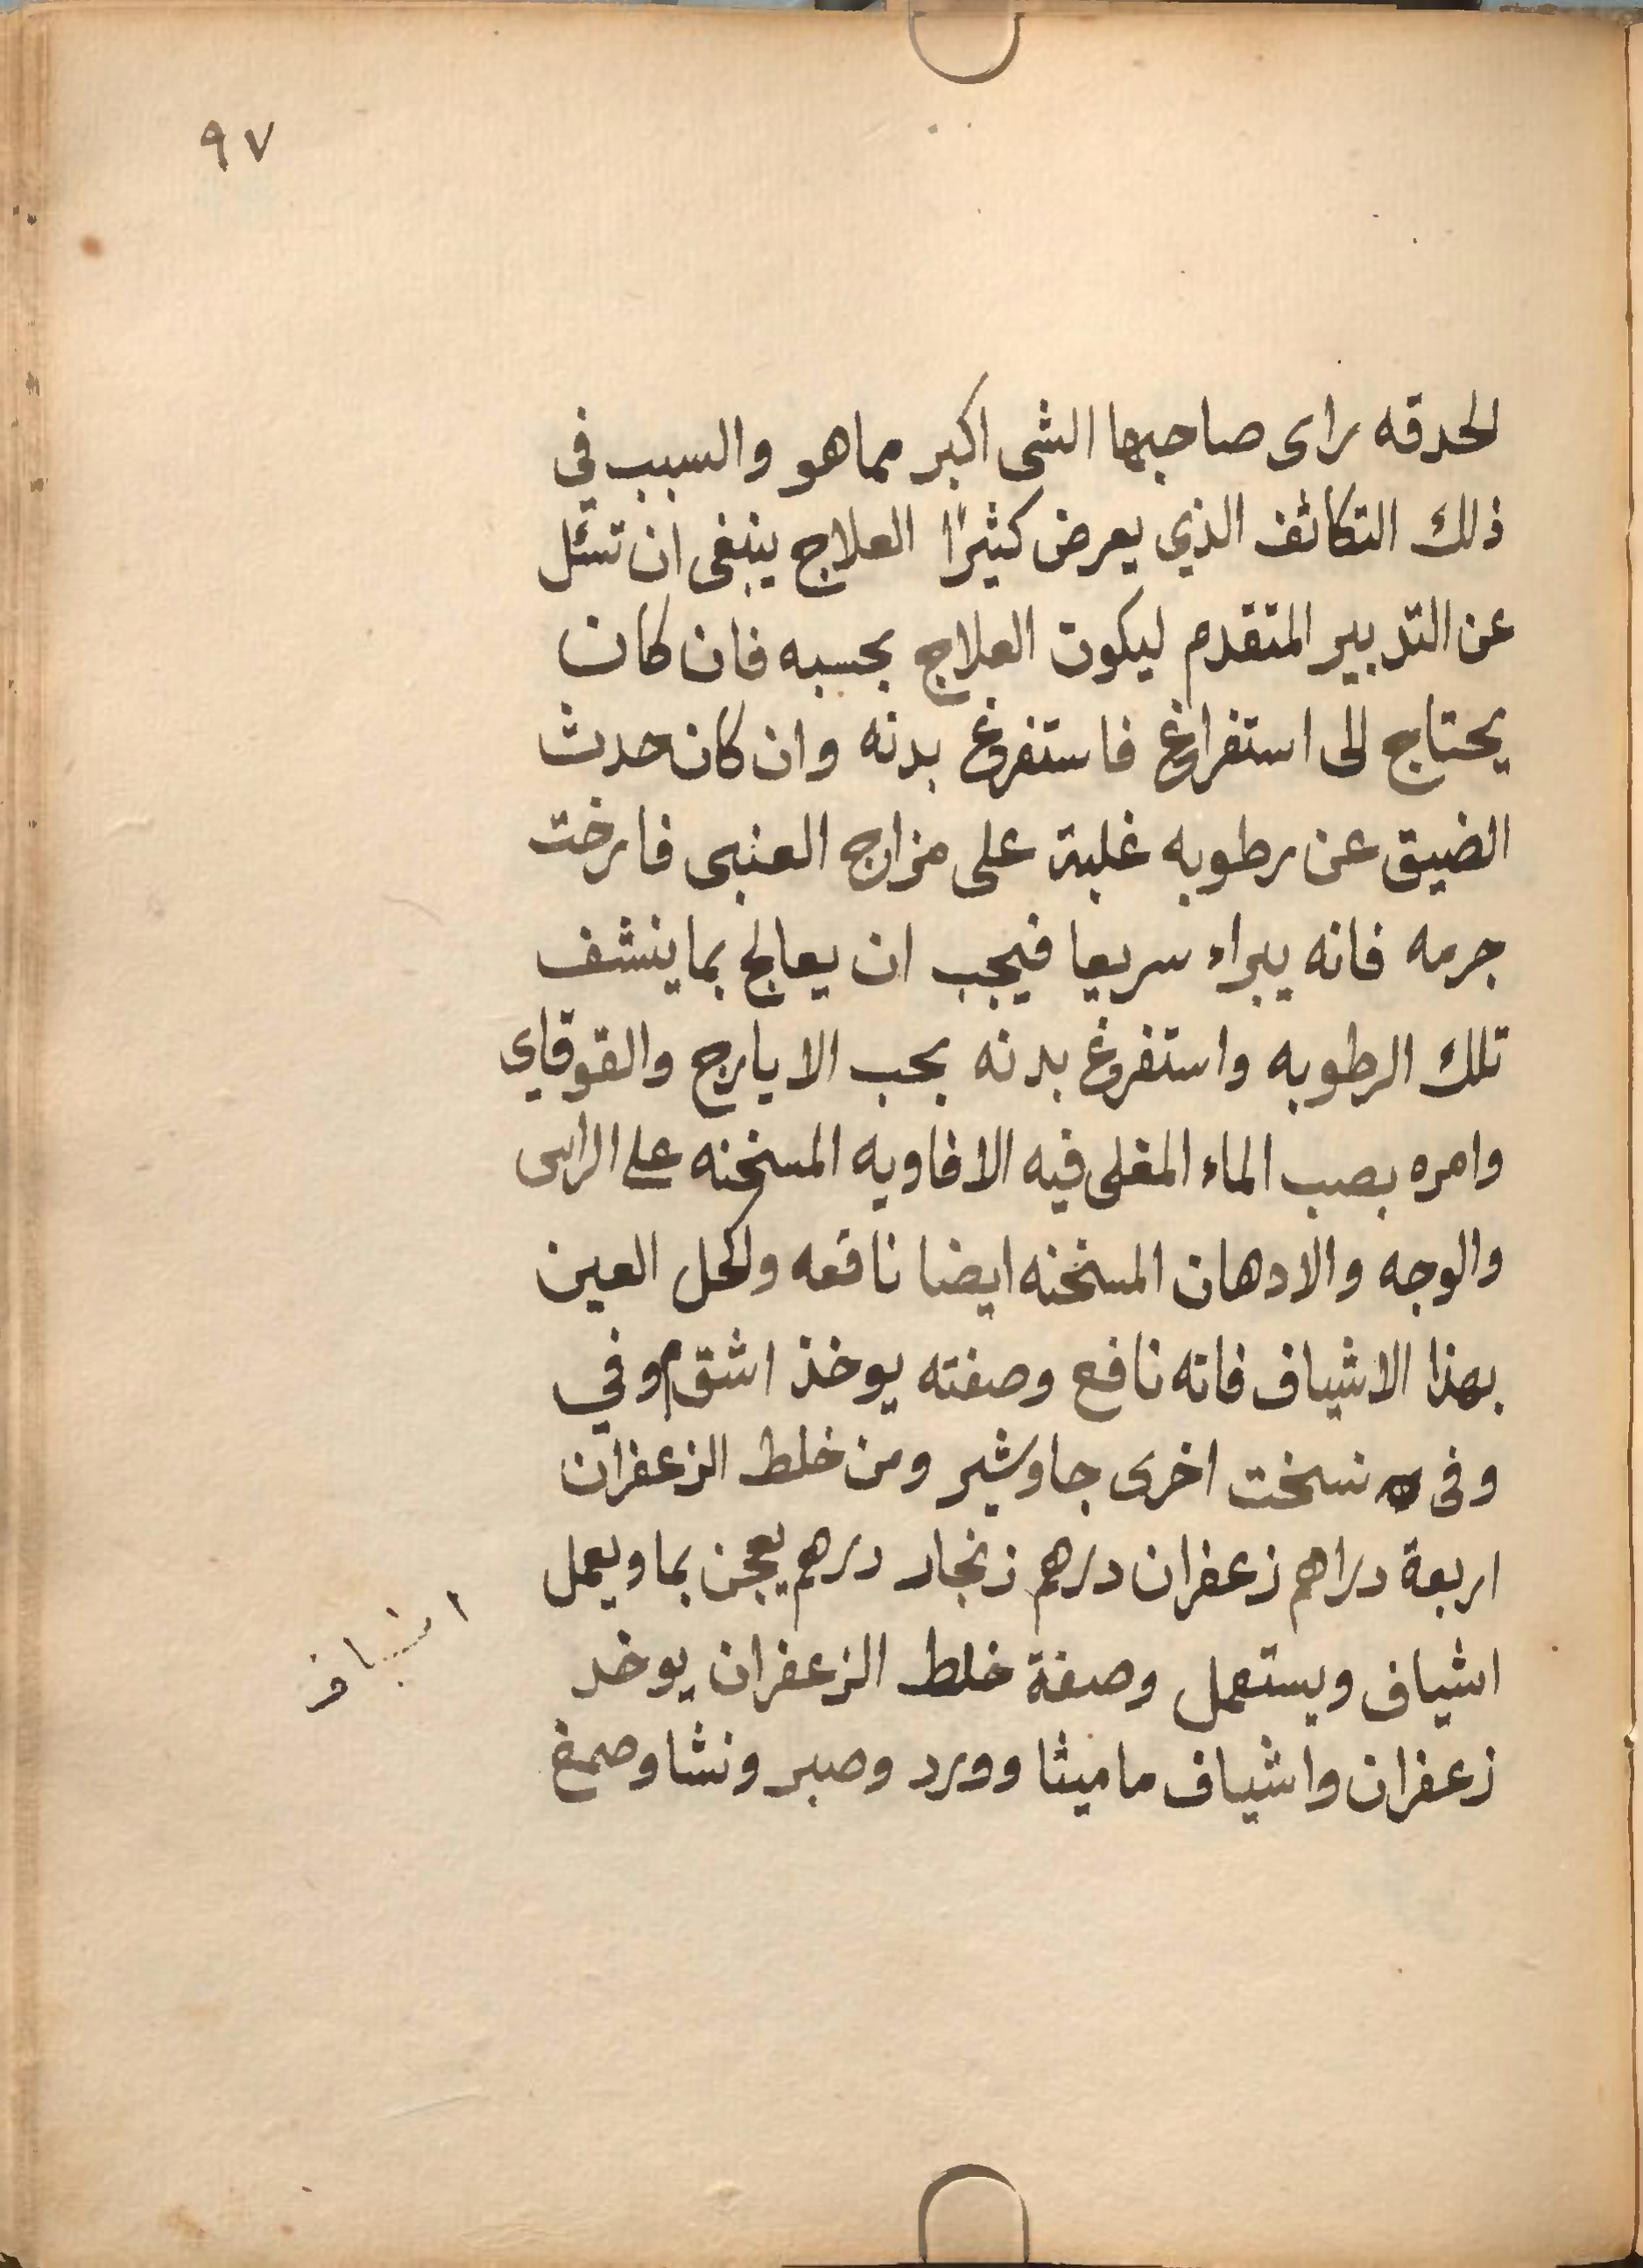 ٩٧
الحدقه راى صاحبها الشى اكبر مماهو والسبب في
ذلك التكاثف الذي يعرض كثيرًا العلاج ينبغى ان تسئل
عن التدبير المتقدم ليكون العلاج بحسبه فان كان
يحتاج الى استفراغ فاستفرغ بدنه وان كان حدث
الضيق عن رطوبه غلبة على مزاج العنبى فارخت
جرمه فانه يبراء سريعا فيجب ان يعالج بما ينشف
تلك الرطوبه واستفرغ بدنه بحب الايارج والقوقاي
وامره بصب الماء المغلى فيه الافاويه المسخنه على الراس
والوجه والادهان المسخنه ايضا نافعه وكحل العين
بهذا الاشياف فانه نافع وصفته يوخذ اشق وفي
وفى نسخت اخرى جاوشير ومن خلط الزعفران
اربعة دراهم زعفران درهم زنجار درهم يعجن بما ويعمل
اشياف ويستعمل وصفة خلط الزعفران يوخد
زعفران واشياف ماميثا وورد وصبر ونشا وصمغ
اشياف